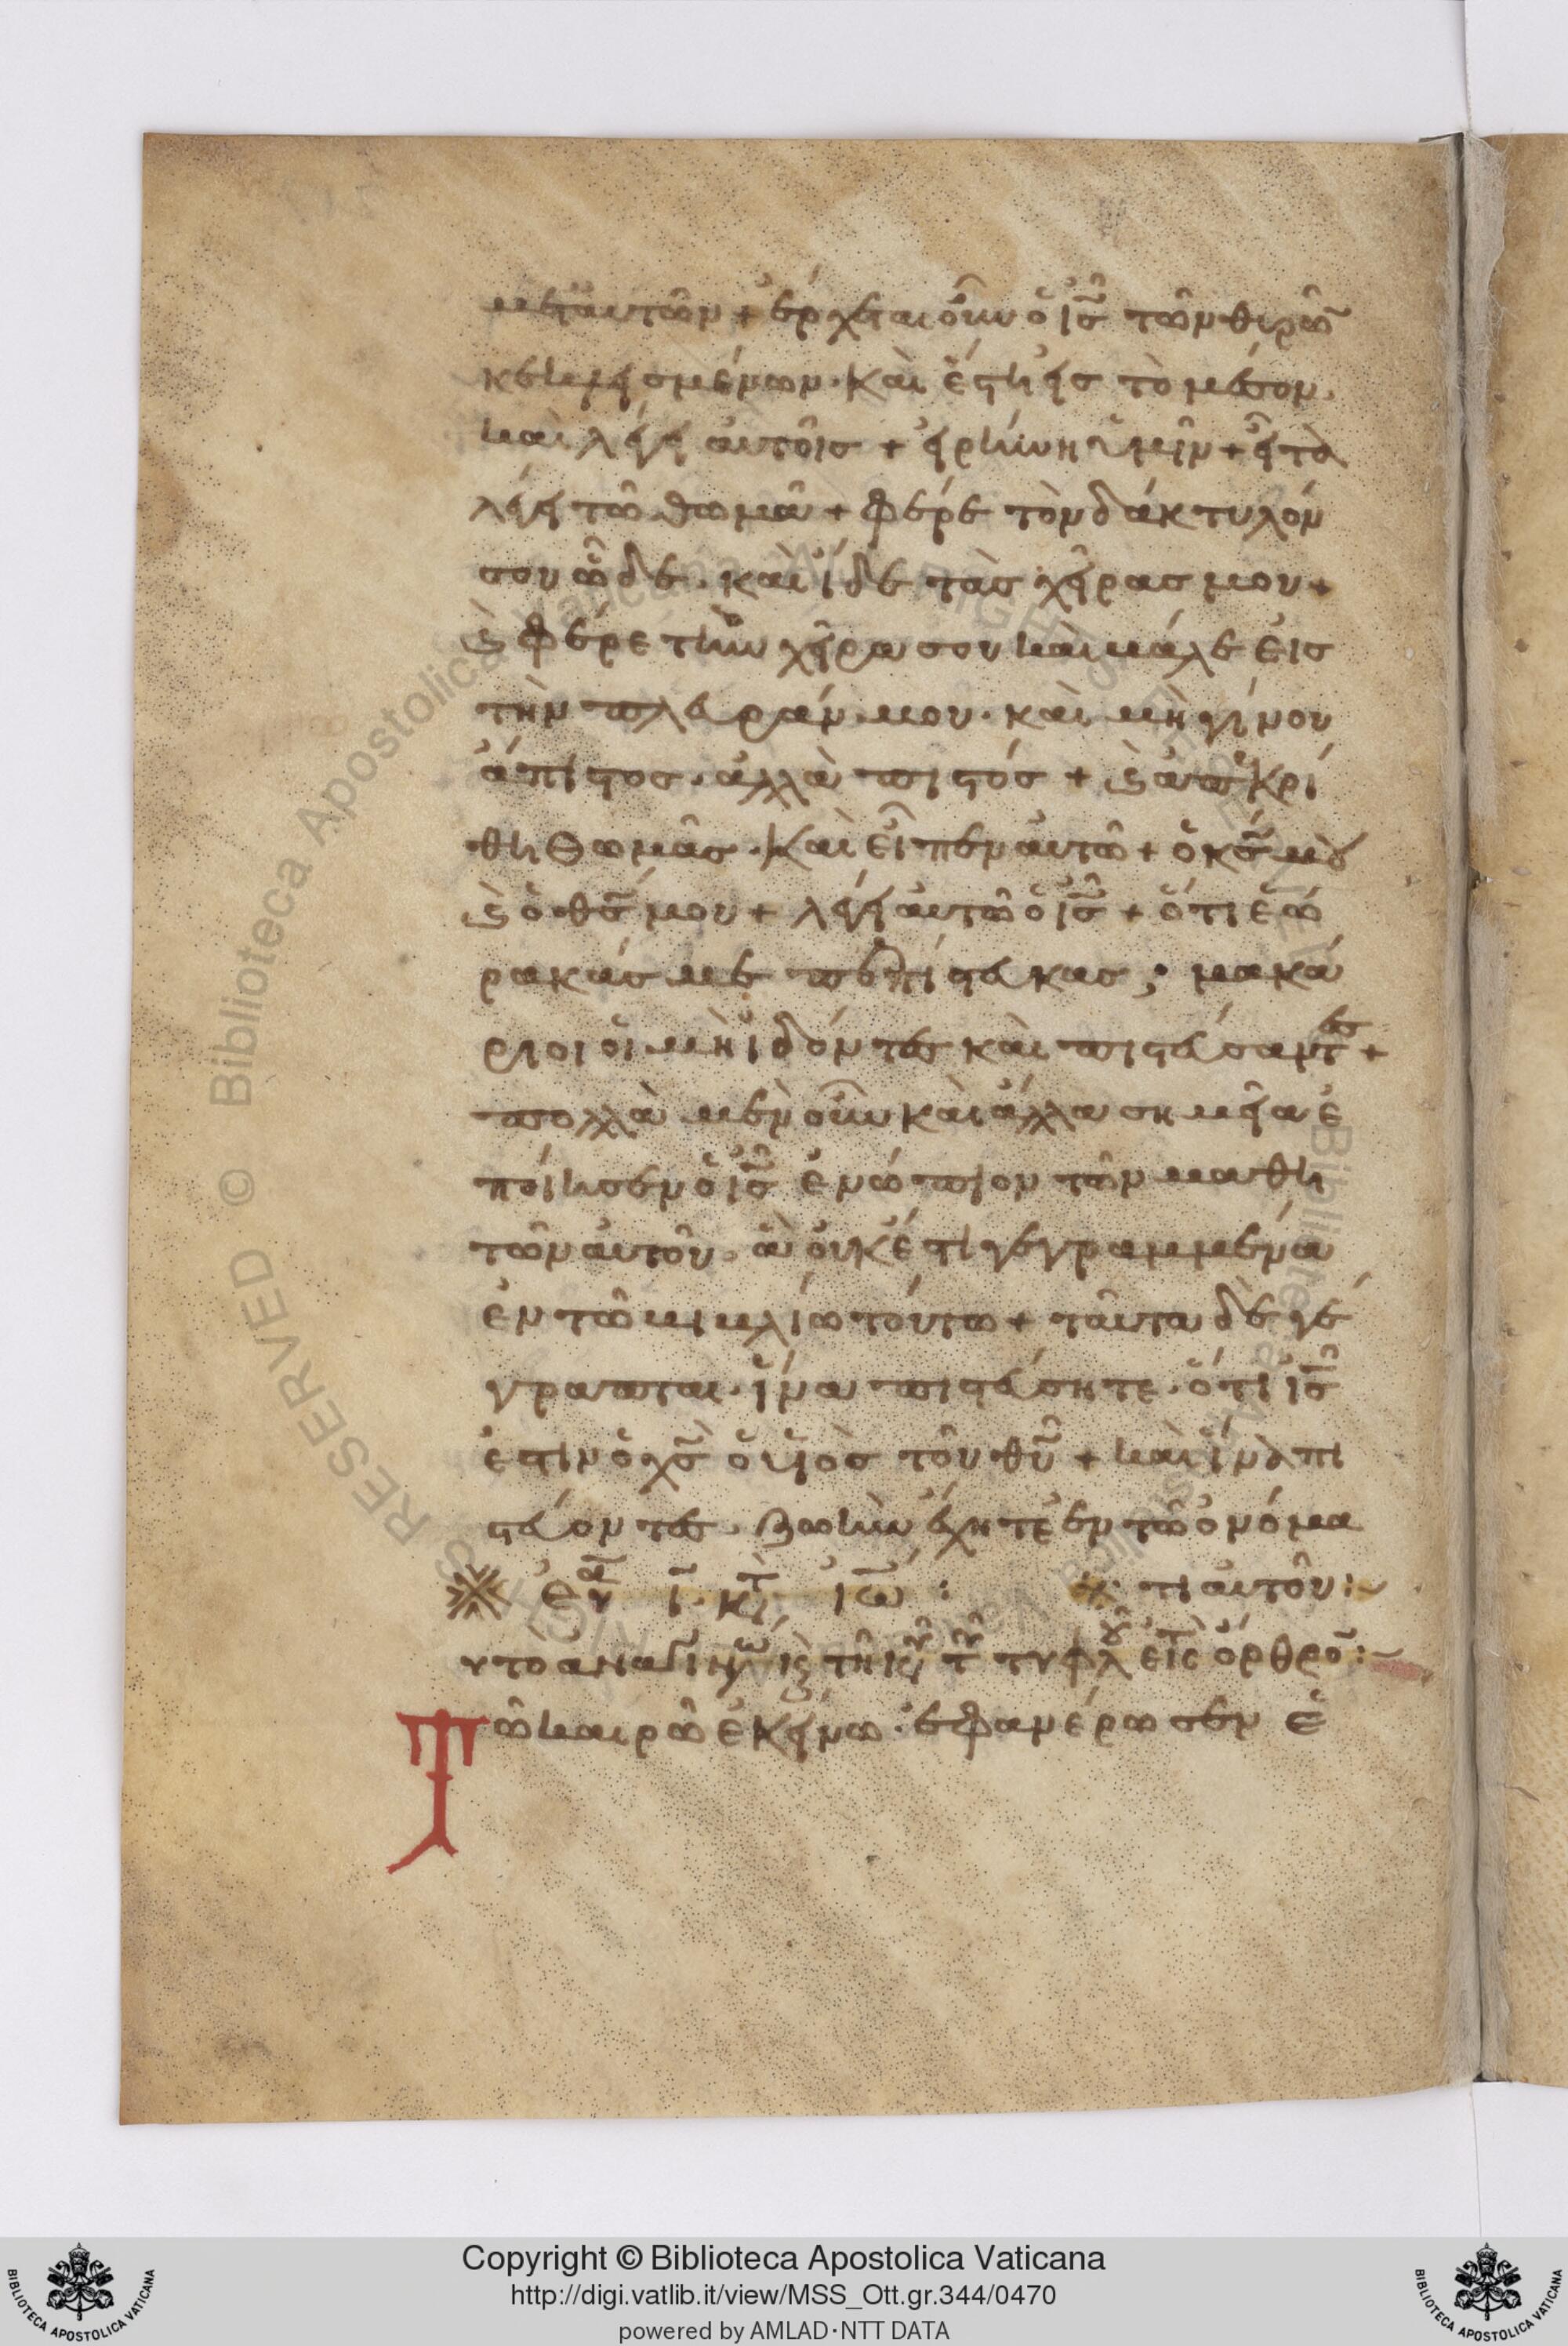 μετ' αὐτῶν + ἔρχεται οὖν ὁ ἰ̅ς̅ τῶν θυρῶ̅
κεκλεισμένων · καὶ ἔστη εἰς τὸ μέσον ·
καὶ λέγει αὐτοῖς + εἰρήνη ὑμῖν + εἶτα
λέγει τῶ θωμᾶ + φέρε τὸν δάκτυλόν
σου ὧδε · καὶ ἴδε τὰς χεῖρας μου +
ϗ φέρε τὴν χεῖρα σου καὶ βάλε εἰς
τὴν πλευράν μου · καὶ μὴ γίνου
ἄπιστος · ἀλλὰ πιστός + ϗ ἀπεκρί
θη Θωμᾶς · καὶ εἶπεν αὐτῶ + ὁ κ̅ς̅ μου
ϗ ὁ θ̅ς̅ μου + λέγει αὐτῶ ὁ ἰ̅ς̅ + ὅτι ἑώ
ρακάς με πεπίστευκας ; μακά
ριοι οἱ μὴ ἰδόντες καὶ πιστεύσαντες +
πολλὰ μὲν οὖν καὶ ἄλλα σημεῖα ἐ
ποίησεν ὁ ἰ̅ς̅ ἐνώπιον τῶν μαθη
τῶν αὐτοῦ · ἃ οὐκ ἔστι γεγραμμένα
ἐν τῶ βιβλίω τούτω + ταῦτα δὲ γέ
γραπται · ἵνα πιστεύσητε · ὅτι ἰ̅ς̅
ἐστιν ὁ χ̅ς̅ ὁ υἱὸς τοῦ θ̅υ̅ + καὶ ἵνα πι
στεύοντες · ζωὴν ἔχητε ἐν τῶ ὀνόμα
※ ἐυα ι̅ · κτ ἰω : τι αὐτοῦ :~
τυφλ εἰς ὄρθρο :~
Τῶ καιρῶ ἐκείνω · ἐφανέρωσεν ἑ
Copyright © Biblioteca Apostolica Vaticana
http://digi.vatlib.it/view/MSS_Ott.gr.344/0470
powered by AMLAD·NTT DATA
BIBLIOTECA APOSTOLICA VATICANA
BIBLIOTECA APOSTOLICA VATICANA